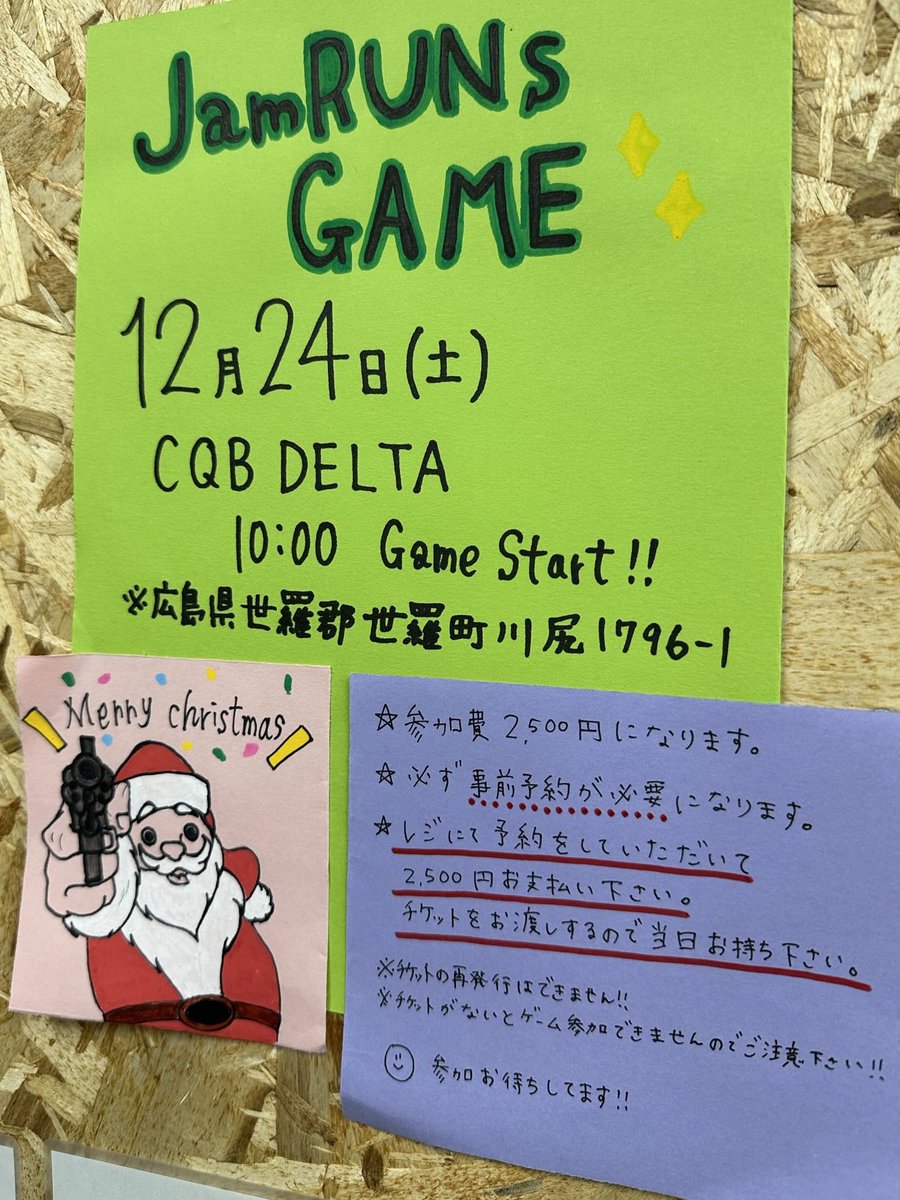 JamRUNs
GAME
12月24日(土)
CQB DELTA
10:00 Game Start!!
※広島県世羅郡世羅町川尻1796-1
Merry christmas
☆参加費 2,500円になります。
☆必ず事前予約が必要になります。
☆レジにて予約をしていただいて
2,500円お支払い下さい。
チケットをお渡しするので当日お持ち下さい。
※チケットの再発行はできません!!
※チケットがないとゲーム参加できませんのでご注意下さい!!
参加お待ちしてます!!